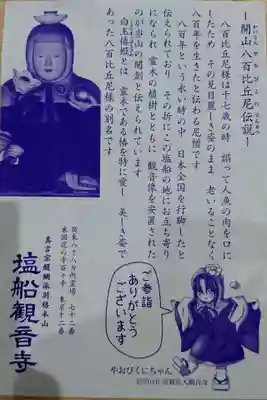 ―開山八百比丘尼伝説―
かいざんやおびくにでんせつ
八百比丘尼様は十七歳の時　誤って人魚の肉を口に
したため　その見目麗しき姿のまま　老いることなく
八百年を生きたと伝わる尼僧です
八百年という永い時の中　日本全国を行脚したと
伝えられており　その折にこの塩船の地にお立ち寄り
になられ　霊木の植樹とともに　観音像を安置された
のが当山の開創と伝えられています
白玉椿姫とは　霊木である椿を特に愛し　美しき姿で
あった八百比丘尼様の別名です
ご参詣
ありがとう
ございます
やおびくにちゃん
関東八十八ヵ所霊場　七十二番
東国花の寺百ヶ寺　東京十二番
真言宗醍醐派別格本山
塩船観音寺